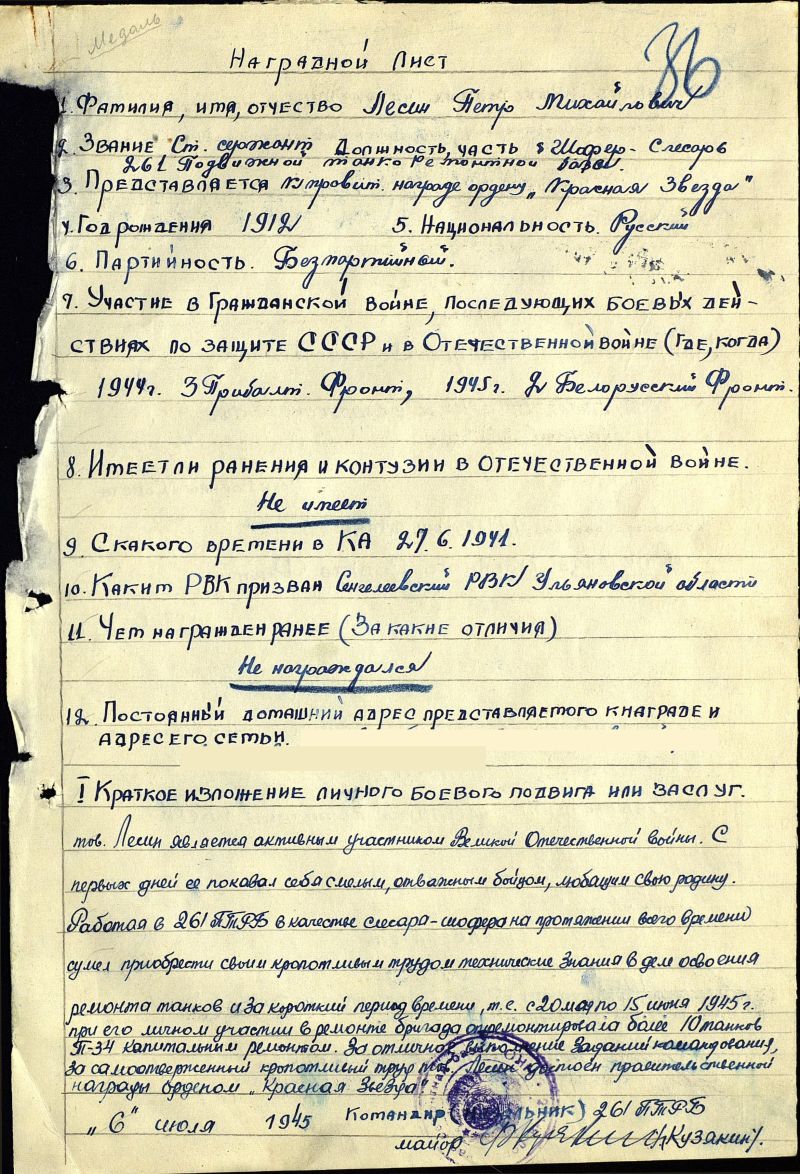 Медаль
36
Наградной Лист
1. Фамилия, имя, отчество Лесин Петр Михайлович
2. Звание Ст. сержант Должность, часть Шофер-Слесарь
261 Подвижной танкоремонтной базы.
3. Представляется к правит. награде ордену „Красная Звезда"
4. Год рождения 1912 5. Национальность. Русский
6. Партийность. Безпартийный.
7. Участие в Гражданской войне, последующих боевых дей-
ствиях по защите СССР и в Отечественной войне (где, когда)
1944г. 3 Прибалт. Фронт, 1945г. 2 Белорусский Фронт.
8. Имеет ли ранения и контузии в Отечественной войне.
Не имеет
9. С какого времени в КА 27.6.1941.
10. Каким РВК призван Сенгелеевский РВК Ульяновской области
11. Чем награжден ранее (За какие отличия)
Не награждался
12. Постоянный домашний адрес представляемого к награде и
адрес его семьи.
I Краткое изложение личного боевого подвига или заслуг.
тов. Лесин является активным участником Великой Отечественной войны. С
первых дней ее показал себя смелым, отважным бойцом, любящим свою родину.
Работая в 261 ПТРБ в качестве слесаря-шофера на протяжении всего времени
сумел приобрести своим кропотливым трудом технические знания в деле освоения
ремонта танков и за короткий период времени, т.е. с 20 мая по 15 июня 1945г.
при его личном участии в ремонте бригада отремонтировала более 10 танков
Т-34 капитальным ремонтом. За отличное выполнение заданий командования,
за самоотверженный кропотливый труд тов. Лесин достоин правительственной
награды орденом „Красная Звезда"
„6" июля 1945 Командир (начальник) 261 ПТРБ
майор (Кузякин).